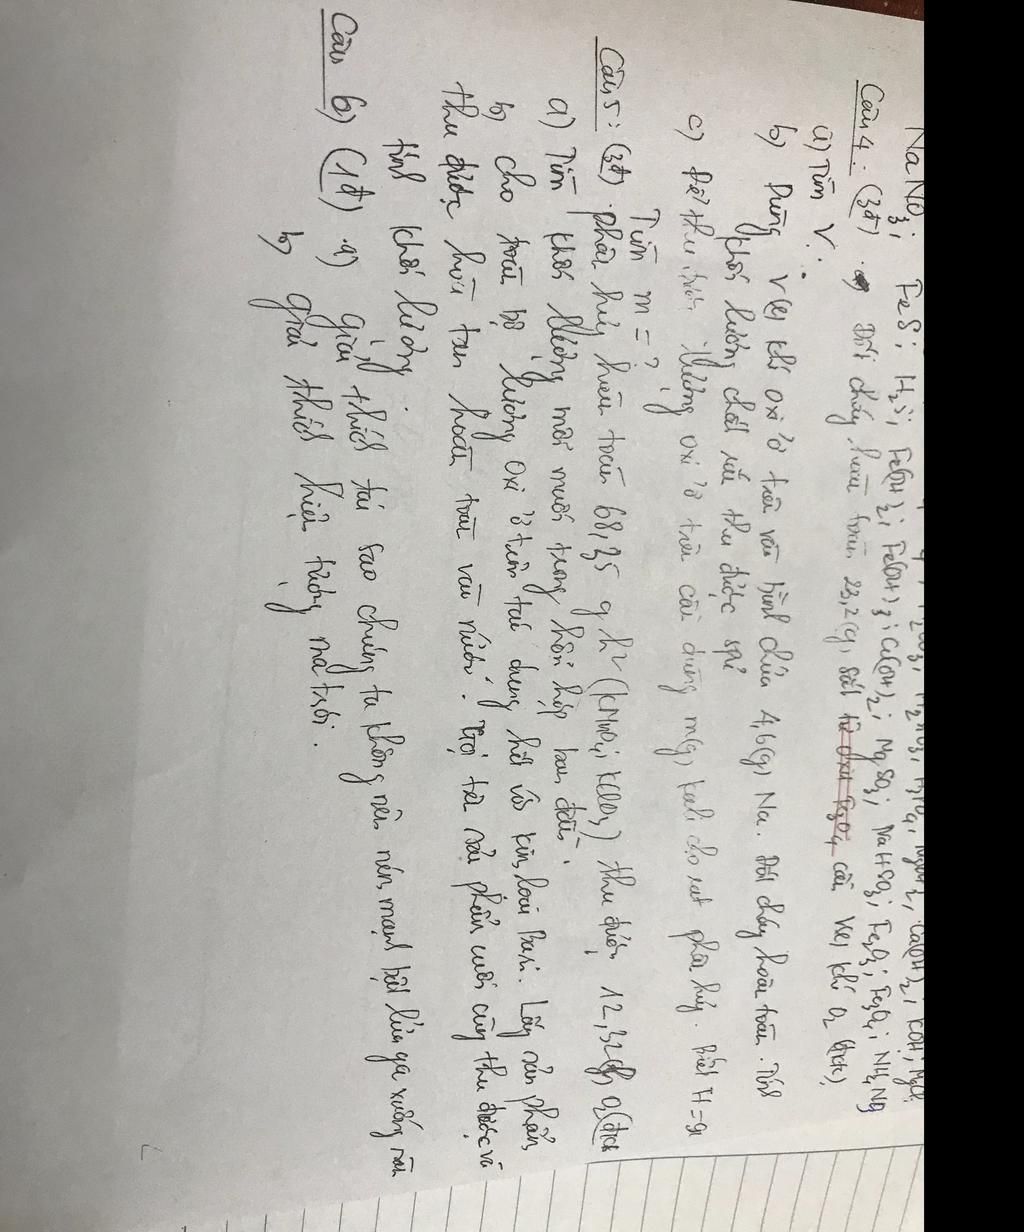 NaNO3; FeS; H2S; Fe(OH)2; Fe(OH)3; Cu(OH)2; MgSO3; NaHSO3; Fe2O3; Fe3O4; NH4NO3
Câu 4: (3đ). Đốt cháy hoàn toàn 23,2(g) sắt cần V(l) khí O2 (đktc)
a) Tìm V.
b) Dùng V(l) khí oxi ở trên vào bình chứa 46(g) Na. Đốt cháy hoàn toàn. Tính
khối lượng chất rắn thu được spư
c) Để thu được lượng oxi ở trên cần dùng m(g) kali clorat phân hủy. Biết H=
Tìm m=?
Câu 5: (3đ). phân hủy hoàn toàn 68,35 g h2 (KMnO4; KClO3) thu được 12,32(l) O2 (đktc
a) Tìm khối lượng mỗi muối trong hỗn hợp ban đầu.
b) cho toàn bộ lượng oxi ở trên tác dụng hết với kim loại Bari. Lấy sản phẩm
thu được hòa tan hoàn toàn vào nước. Gọi tên sản phẩm cuối cùng thu được và
tính khối lượng.
Câu 6) (1đ) a) giải thích tại sao chúng ta không nên ném mạnh bật lửa ga xuống
b) giải thích hiện tượng ma trơi.